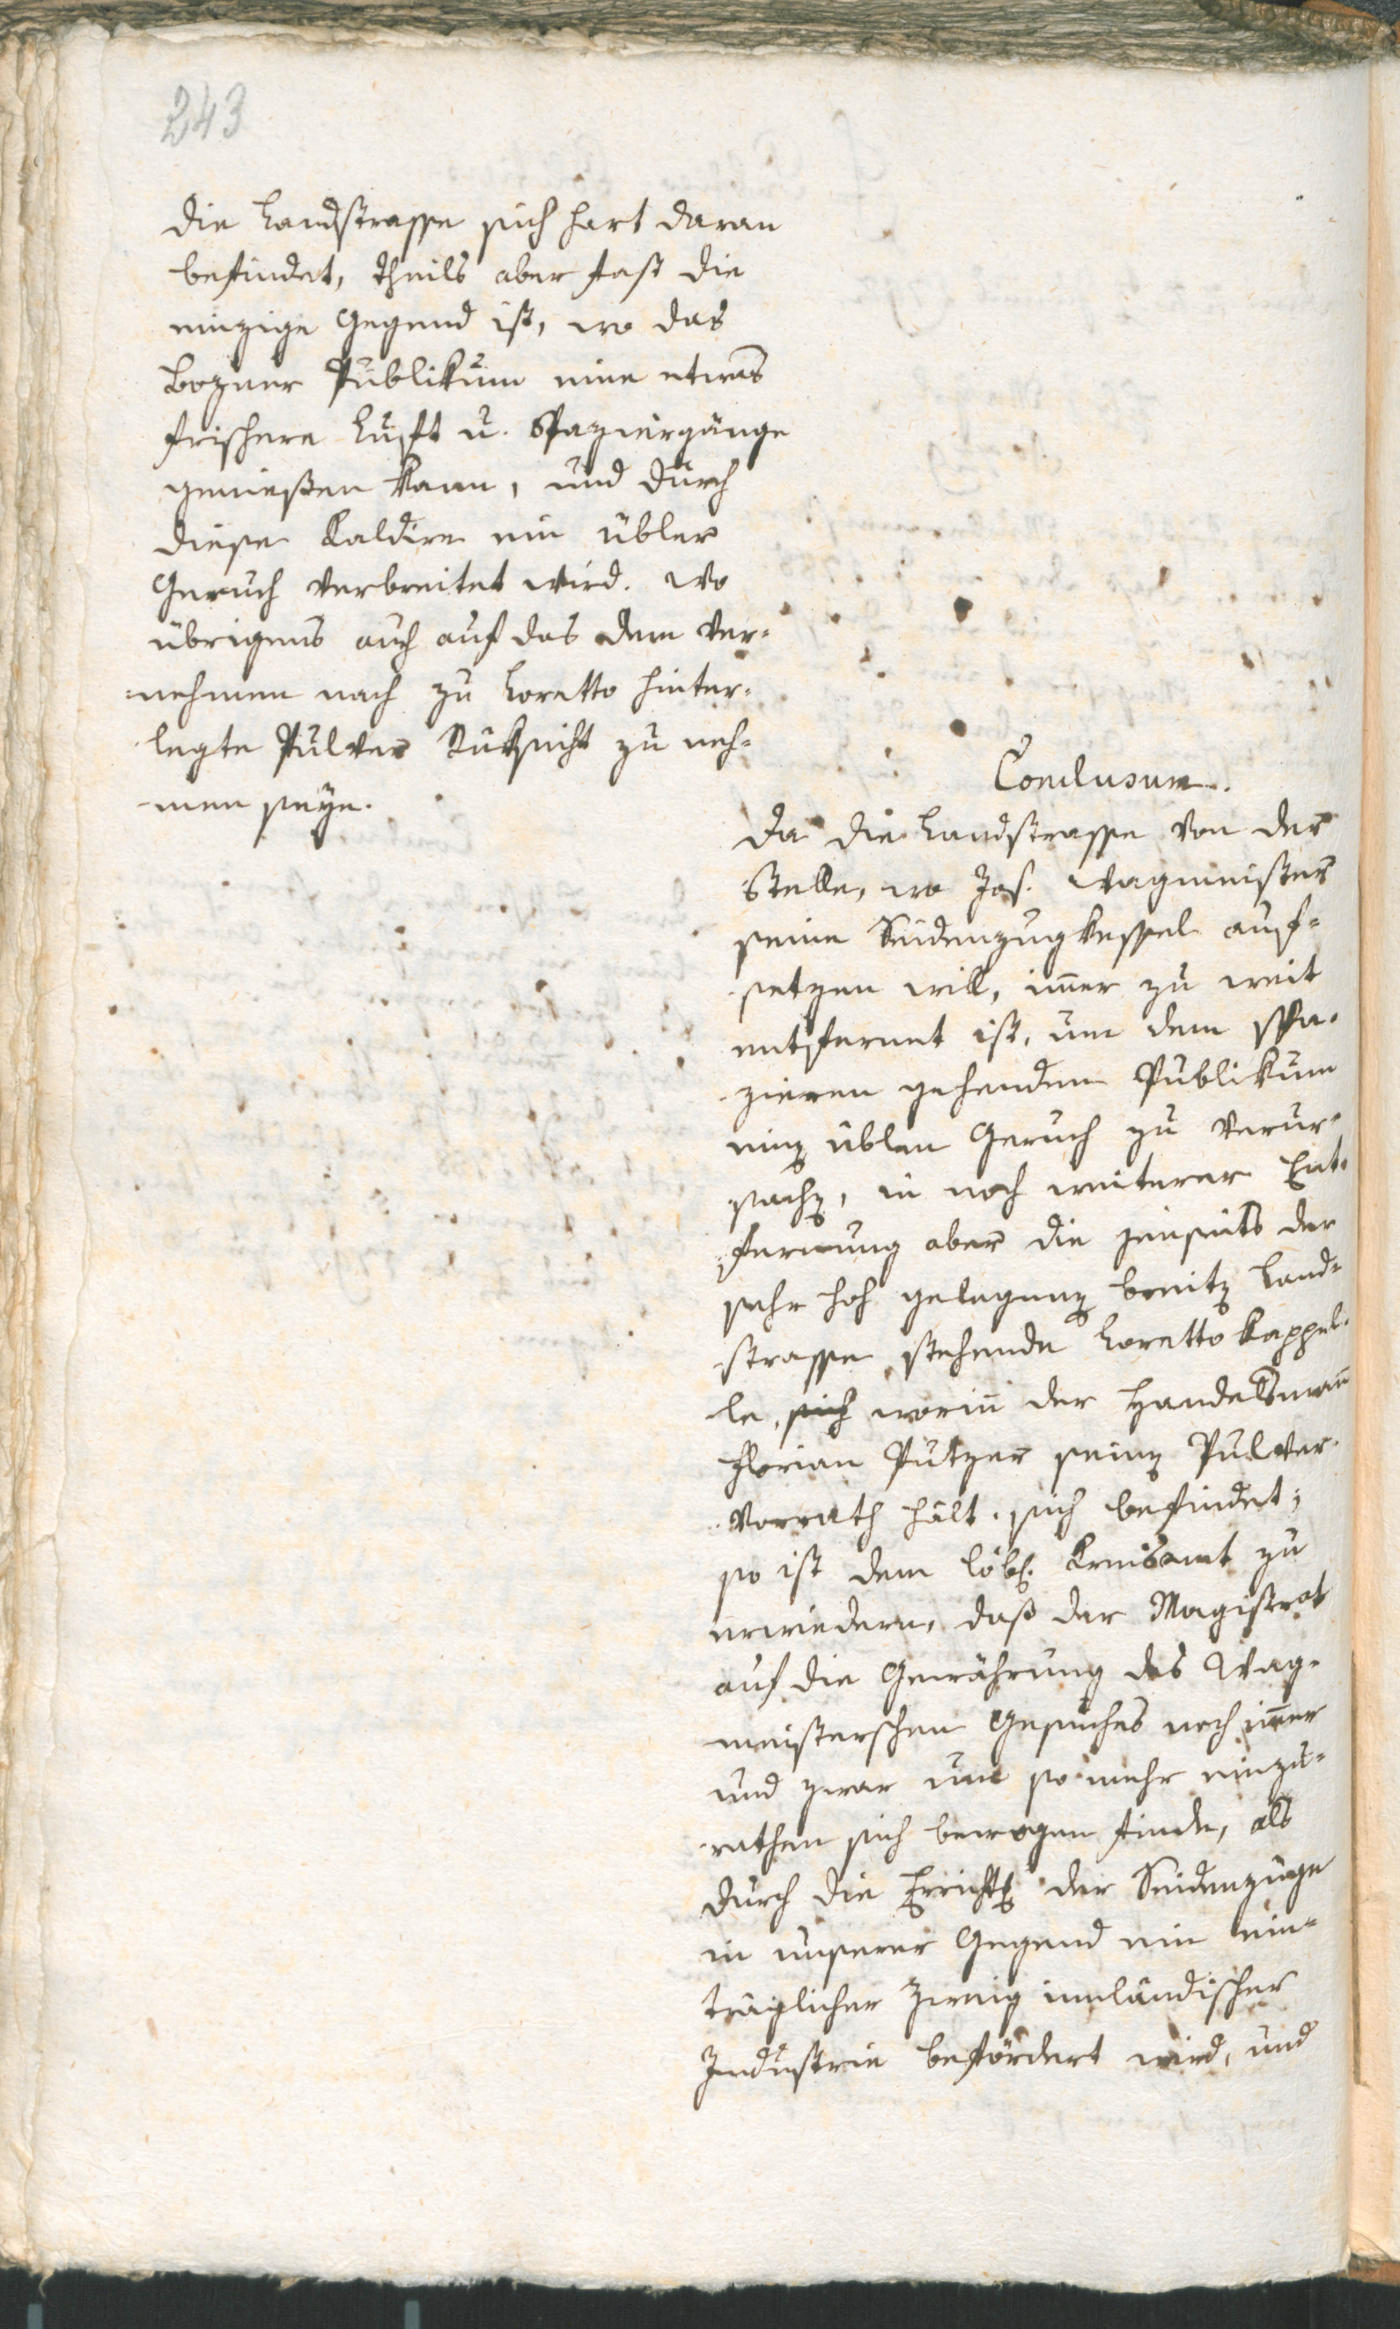 243
die Landstrasse sich hart daran
befindet, theils aber fast die
einzige Gegend ist, wo das
Bozner Publikum eine etwas
frischere Luft u. Spaziergänge
genießen kann, und durch
diese Kaldire ein übler
Geruch verbreitet wird. Wo
übrigens auch auf das dem Ver-
nehmen nach zu Loretto hinter-
legte Pulver Ruksicht zu neh-
men seye.
Conclusum.
Da die Landstrasse von der
Stelle, wo Jos. Wagmeister
seine Seidenzugkessel auf-
setzen will, im̄er zu weit
entfernet ist, um dem spa-
zieren gehenden Publikum
einen üblen Geruch zu verur-
sachen, in noch weiterer Ent-
fernung aber die jenseits der
sehr hoch gelegenen breiten Land-
strasse stehende Loretto Kappel-
le, sich worin̄ der Handelsman̄
Florian Putzer seinen Pulver-
vorrath hält, sich befindet;
so ist dem löbl. Kreisamt zu
erwiedern, daß der Magistrat
auf die Gewährung des Wag-
meisterschen Gesuches noch im̄er
und zwar um so mehr einzu-
rathen sich bewogen finde, als
durch die Errichtung der Seidenzüge
in unserer Gegend ein ein-
träglicher Zweig innländischer
Industrie befördert wird, und